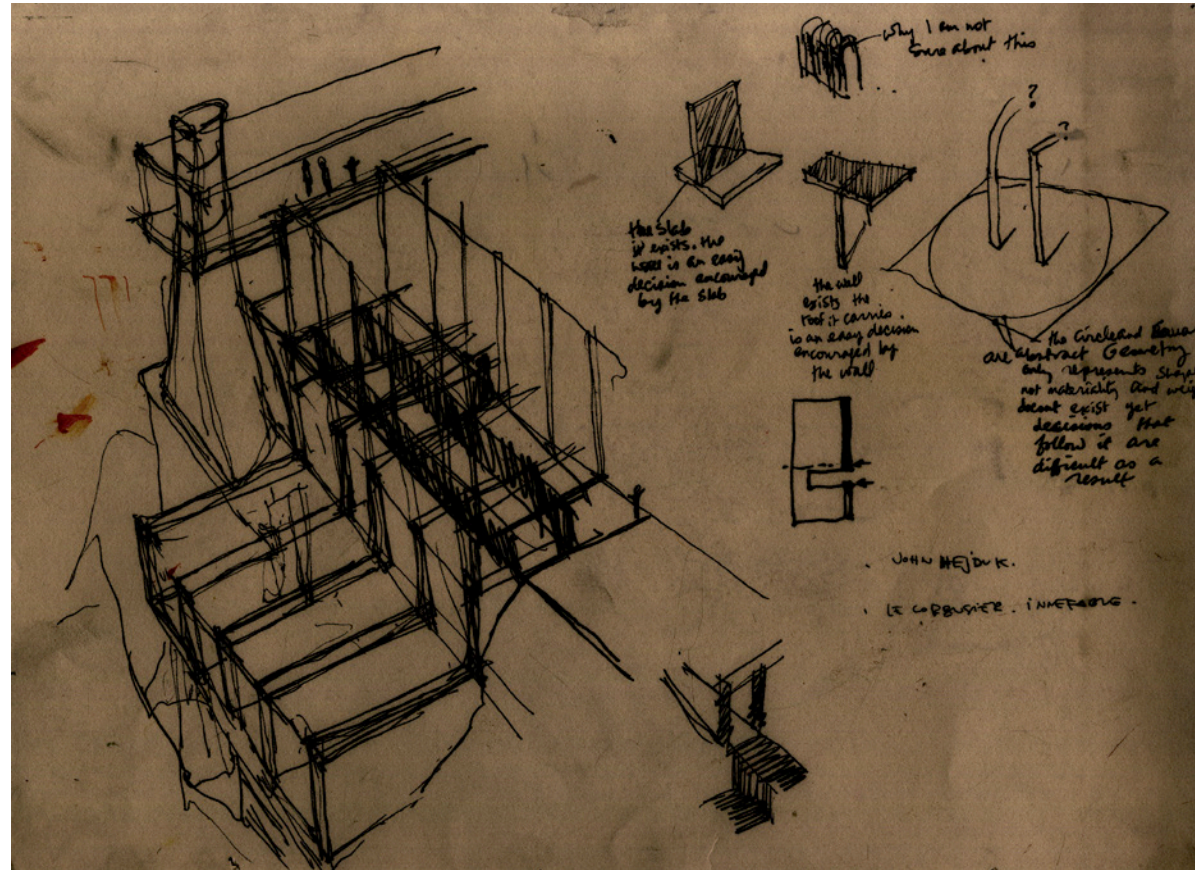 why I am not
sure about this
?
?
the slab
it exists. the
wall is an easy
decision encouraged
by the slab
the wall
exists the
roof it carries.
is an easy decision
encouraged by
the wall
the circle and Square
are abstract Geometry
only represents shape
not materiality and
doesnt exist yet
decisions that
follow it are
difficult as a
result
. JOHN HEJDUK.
. LE CORBUSIER. INEFFABLE.